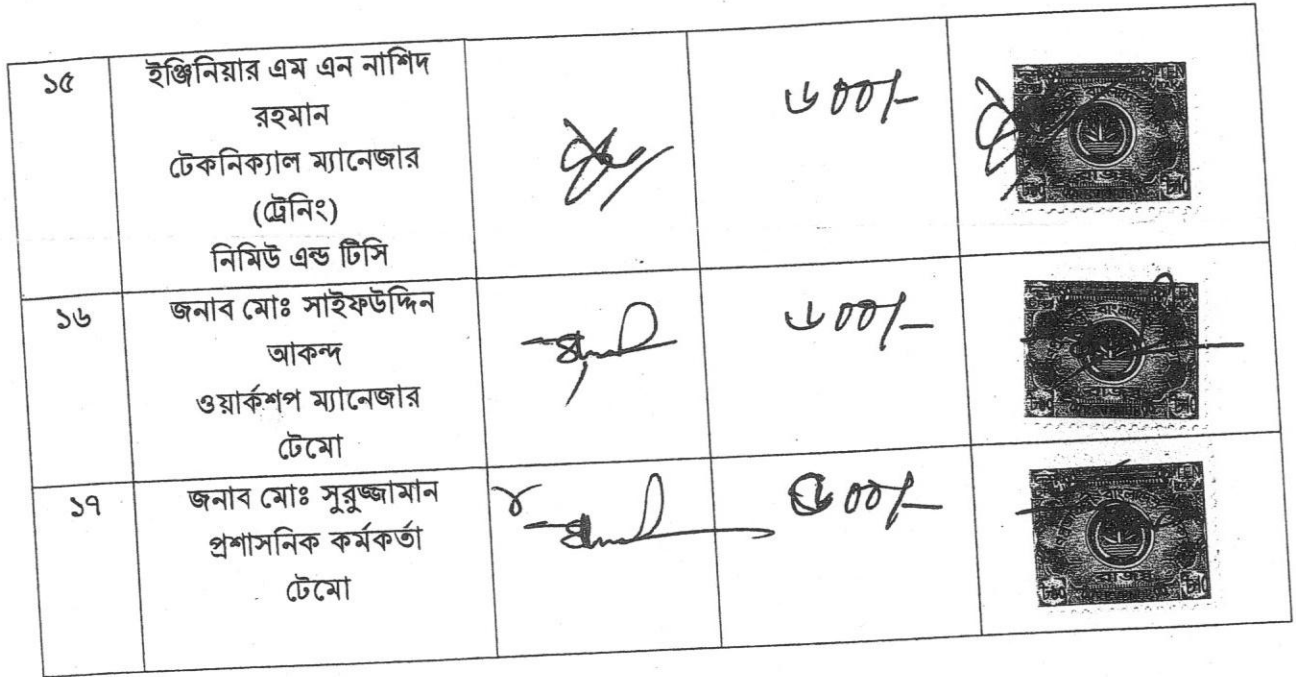 ১৫
ইঞ্জিনিয়ার এম এন নাশিদ
রহমান
টেকনিক্যাল ম্যানেজার
(ট্রেনিং)
নিমিউ এন্ড টিসি
৬০০/-
রাজস্ব
১৬
জনাব মোঃ সাইফউদ্দিন
আকন্দ
ওয়ার্কশপ ম্যানেজার
টেমো
৬০০/-
রাজস্ব
১৭
জনাব মোঃ সুরুজ্জামান
প্রশাসনিক কর্মকর্তা
টেমো
৬০০/-
রাজস্ব